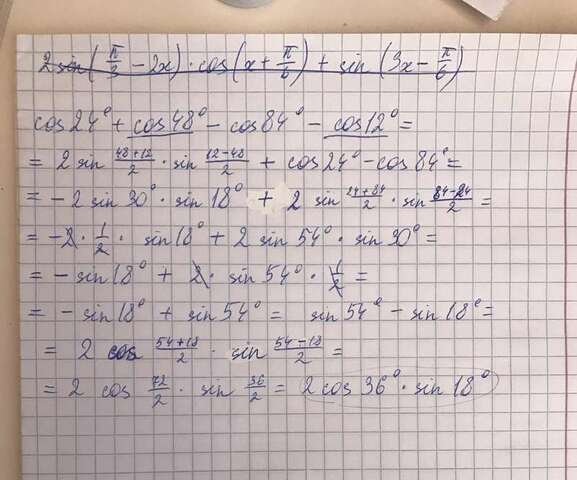 2 sin(π/3 − 2x) · cos(x + π/6) + sin(3x − π/6)
cos 24° + cos 48° − cos 84° − cos 12° =
= 2 sin (48+12)/2 · sin (12−48)/2 + cos 24° − cos 84° =
= − 2 sin 30° · sin 18° + 2 sin (24+84)/2 · sin (84−24)/2 =
= −2 · 1/2 · sin 18° + 2 sin 54° · sin 30° =
= − sin 18° + 2 · sin 54° · 1/2 =
= − sin 18° + sin 54° = sin 54° − sin 18° =
= 2 cos (54+18)/2 · sin (54−18)/2 =
= 2 cos 72/2 · sin 36/2 = 2 cos 36° · sin 18°